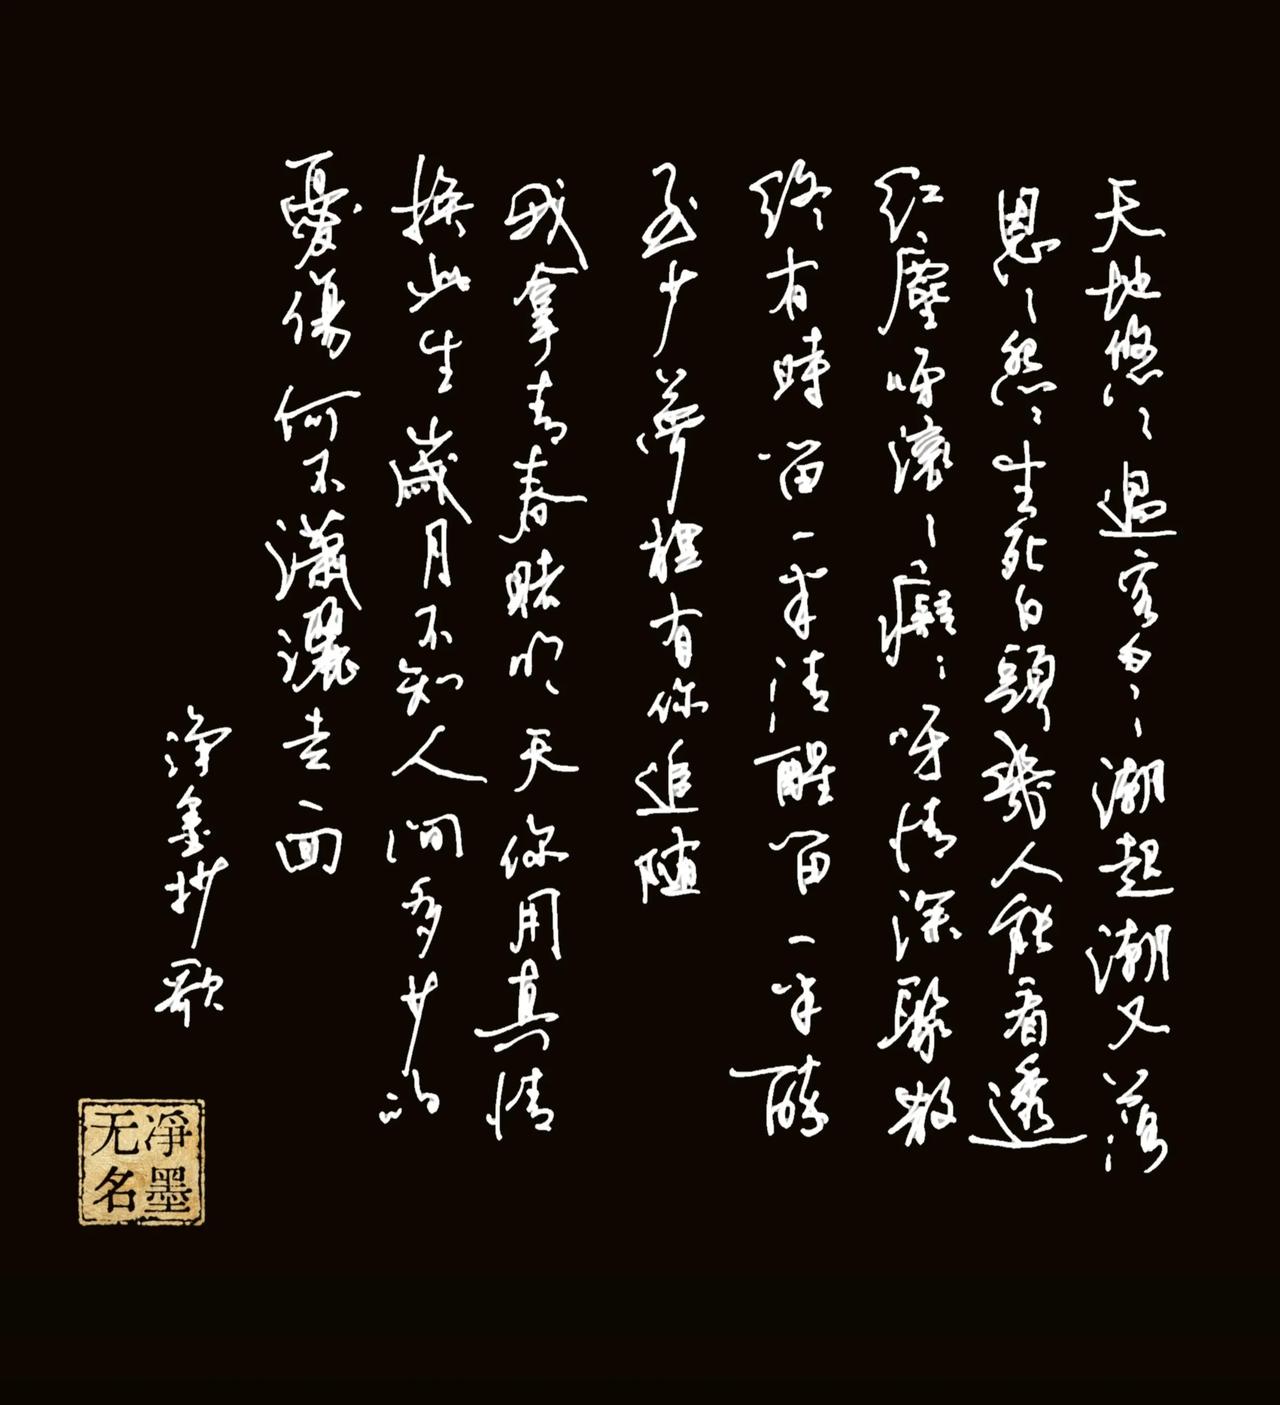 天地悠〻過客匆〻潮起潮又落
恩〻怨〻生死白頭幾人能看透
紅塵呀滾〻癡〻呀情深聚散
終有時留一半清醒留一半醉
至少夢裡有你追随
我拿青春賭明天你用真情
換此生歲月不知人間多少的
憂傷何不瀟灑走一回
淨墨抄歌
凈墨
无名